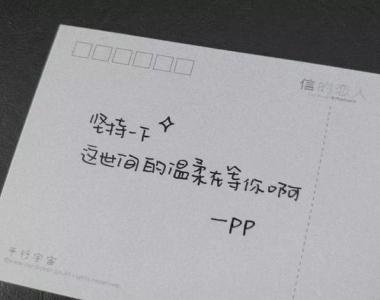 信的恋人
坚持一下
这世间的温柔在等你啊
一PP
平行宇宙